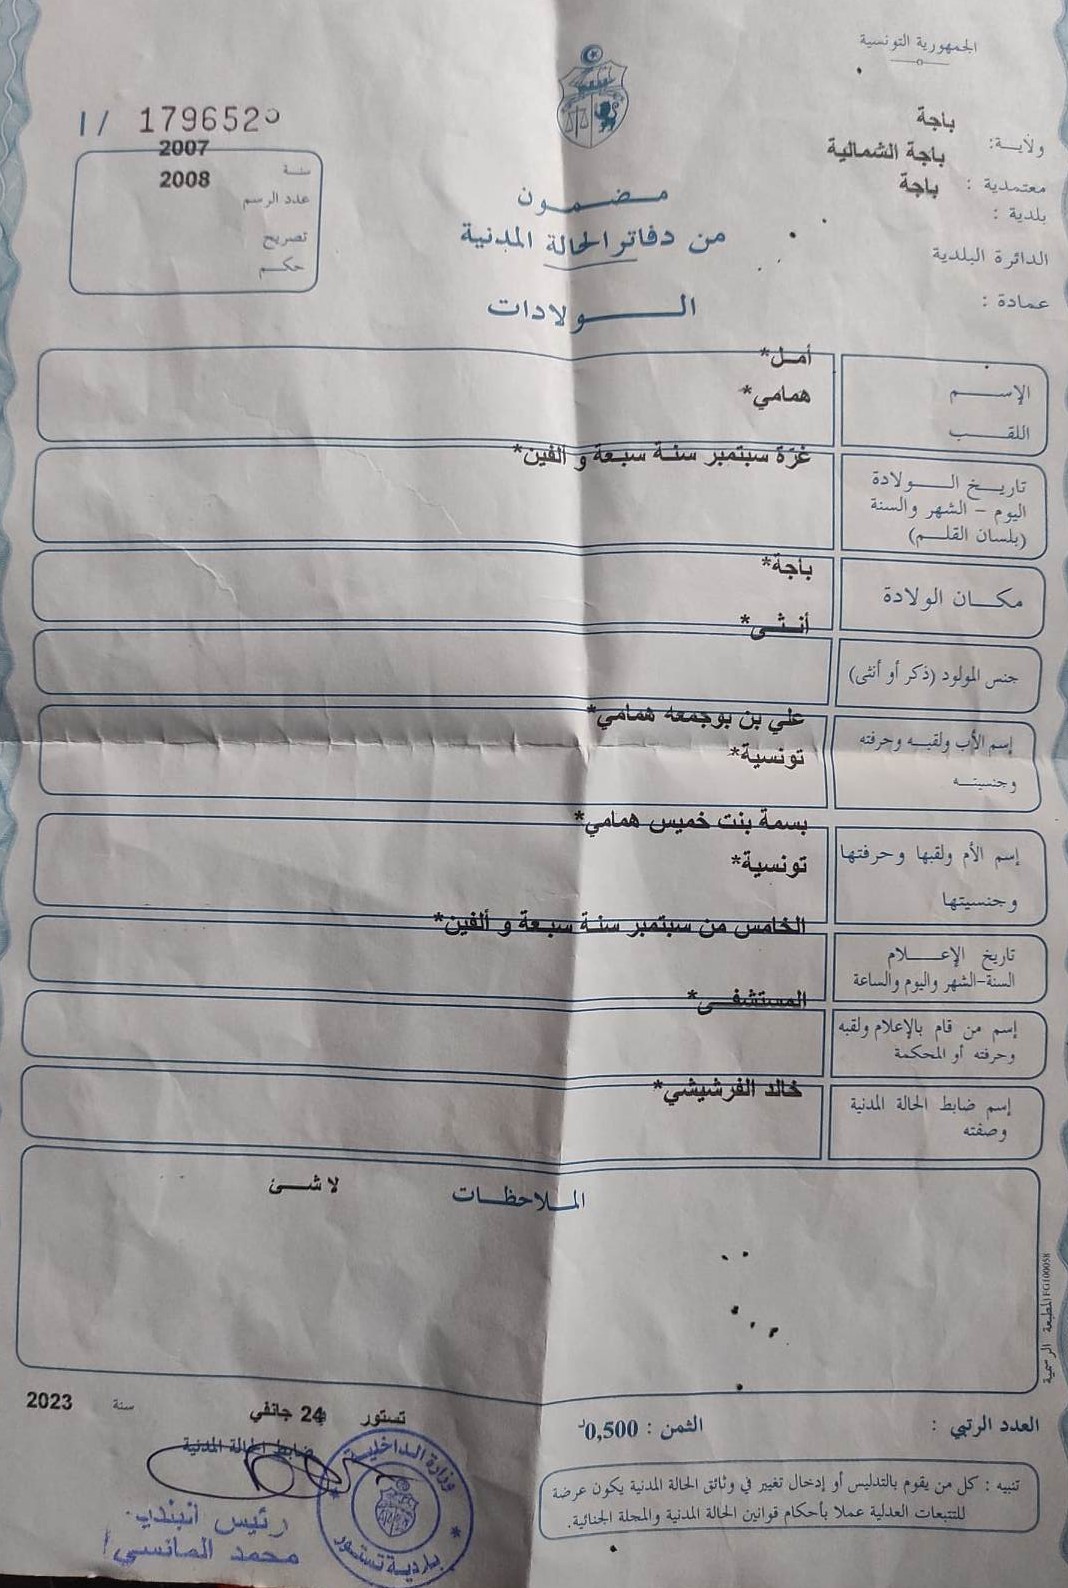 الجمهورية التونسية
ولاية: باجة
معتمدية : باجة الشمالية
بلدية : باجة
الدائرة البلدية
عمادة :
I/ 179652
سنة 2007
عدد الرسم 2008
تصريح
حكم
مضمون
من دفاتر الحالة المدنية
الولادات
الإسم أمل*
اللقب همامي*
تاريخ الولادة
اليوم - الشهر والسنة
(بلسان القلم)
غرّة سبتمبر سنة سبعة و ألفين*
مكان الولادة باجة*
جنس المولود (ذكر أو أنثى) أنثى*
إسم الأب ولقبه وحرفته علي بن بوجمعه همامي*
وجنسيته تونسية*
إسم الأم ولقبها وحرفتها بسمة بنت خميس همامي*
وجنسيتها تونسية*
تاريخ الإعلام
السنة-الشهر واليوم والساعة
الخامس من سبتمبر سنة سبعة و ألفين*
إسم من قام بالإعلام ولقبه
وحرفته أو المحكمة
المستشفى*
إسم ضابط الحالة المدنية
وصفته
خالد الفرشيشي*
الملاحظات لا شئ
المطبعة الرسمية FG100058
تستور 24 جانفي سنة 2023
ضابط الحالة المدنية
رئيس
محمد
وزارة الداخلية
بلدية تستور
العدد الرتبي :
الثمن : 0,500د
تنبيه : كل من يقوم بالتدليس أو إدخال تغيير في وثائق الحالة المدنية يكون عرضة
للتتبعات العدلية عملا بأحكام قوانين الحالة المدنية والمجلة الجنائية.